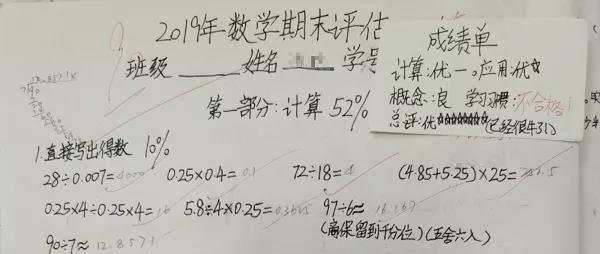 2019年数学期末评估
班级____姓名____学号
成绩单
计算:优一。应用:优☆
概念:良 学习习惯:不合格!
总评:优☆☆☆☆☆☆☆(已经很牛31)
第一部分:计算 52%
1.直接写出得数 10%
28÷0.007=4000 0.25×0.4=0.1 72÷18=4 (4.85+5.25)×25=
0.25×4÷0.25×4=16 5.8÷4×0.25=0.3625 97÷6≈16.167
(需保留到千分位)(五舍六入)
90÷7≈12.8571